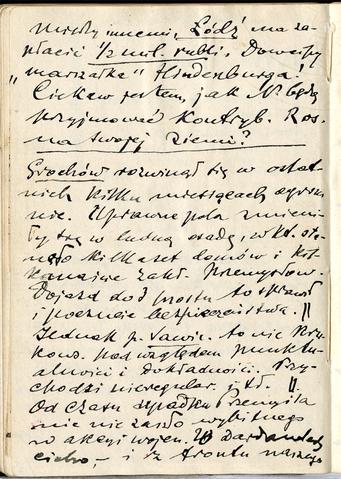 Między innemi, Łódź ma za-
płacić 1/2 mil. rubli. Dowcipny
„marszałek" Hindenburga!
Ciekaw jestem, jak N. będą
przyjmować Kontryb. Ros.
na swojej ziemi?
Grochów rozwinął się w ostat-
nich kilku miesiącach ogrom-
nie. Uprawne pola zmieni-
ły się w ludną osadę, w kt. sta-
nęło kilkaset domów i kil-
kanaście zakł. przemysłow.
Dojazd do mostu to sprawił
i poczucie bezpieczeństwa. ||
Jednak p. Sawic. to nie
pod względem punktu-
alności i dokładności. Przy-
chodzi nieregular. i t.d. ||
Od czasu upadku Przemyśla
nic nie zaszło wybitnego
w akcyi wojen. W Dardanelach
cicho, – i z frontu naszego